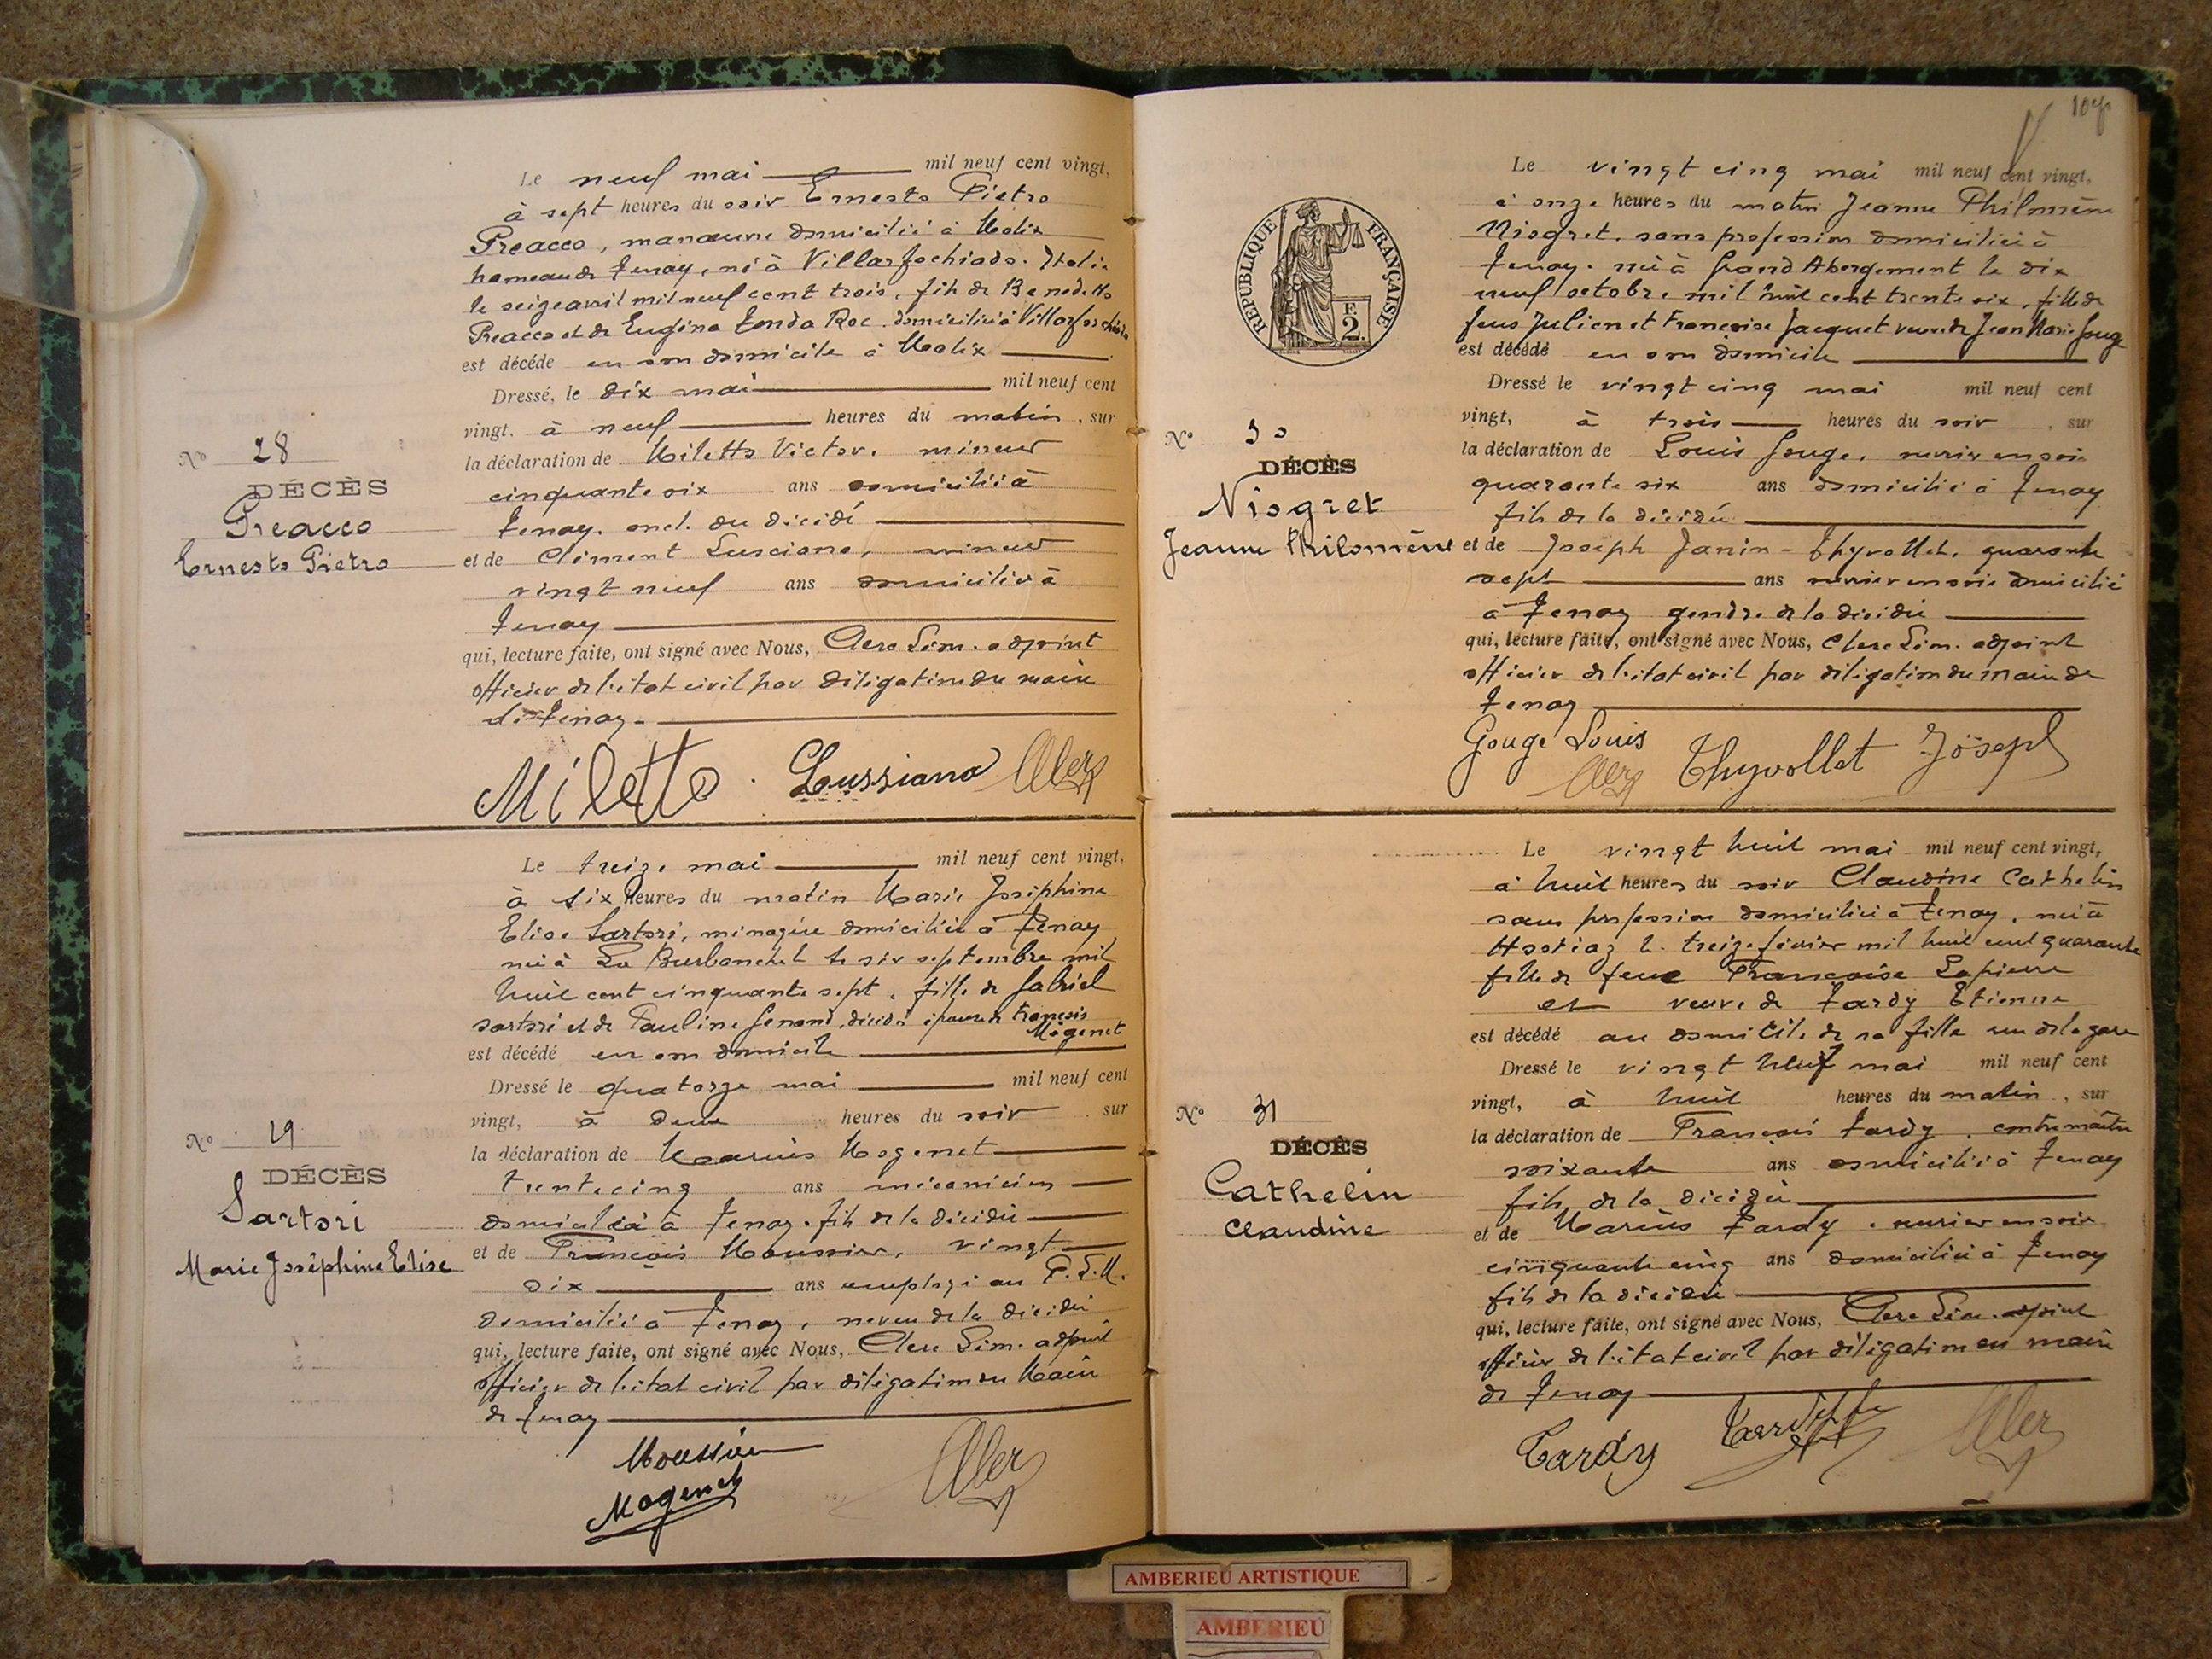 Le neuf mai mil neuf cent vingt,
à sept heures du soir Ernesto Pietro
Preacco, manœuvre domicilié à Malix
hameau de Tenay, né à Villarfochiado. Italie
le seize avril mil neuf cent trois, fils de Benedetto
Preacco et de Eugina Tonda Roc. domicilié à Villarfochiado
est décédé en son domicile à Malix
Dressé, le dix mai mil neuf cent
vingt, à neuf heures du matin, sur
la déclaration de Miletto Victor, mineur
cinquante six ans domicilié à
Tenay. oncle du décédé
et de Clément Lusciano, mineur
vingt neuf ans domicilié à
Tenay
qui, lecture faite, ont signé avec Nous, Clerc Sim. adjoint
officier de l'état civil par délégation du maire
de Tenay.
Miletto. Lussiana Clerc
N° 28
DÉCÈS
Preacco
Ernesto Pietro
Le treize mai mil neuf cent vingt,
à six heures du matin Marie Joséphine
Elise Sartori, ménagère domiciliée à Tenay
née à La Burbanche le six septembre mil
huit cent cinquante sept, fille de Gabriel
Sartori et de Pauline Genand, décédés épouse de François
Mogenet
est décédé en son domicile
Dressé le quatorze mai mil neuf cent
vingt, à deux heures du soir sur
la déclaration de Marius Mogenet
trente cinq ans mécanicien
domicilié à Tenay. fils de la décédée
et de François Moussier, vingt
six ans employé au P.L.M.
domicilié à Tenay, neveu de la décédée
qui, lecture faite, ont signé avec Nous, Clerc Sim. adjoint
officier de l'état civil par délégation du Maire
de Tenay
Moussier
Mogenet Clerc
N° 29
DÉCÈS
Sartori
Marie Joséphine Elise
107
Le vingt cinq mai mil neuf cent vingt,
à onze heures du matin Jeanne Philomène
Niogret. sans profession domiciliée à
Tenay. née à Grand Abergement le dix
neuf octobre mil huit cent trente six, fille de
feus Julien et Françoise Jacquet veuve de Jean Marie Gouge
est décédé en son domicile
Dressé le vingt cinq mai mil neuf cent
vingt, à trois heures du soir, sur
la déclaration de Louis Gouge, ouvrier en soie
quarante six ans domicilié à Tenay
fils de la décédée
et de Joseph Janin-Thyvollet, quarante
sept ans ouvrier en soie domicilié
à Tenay gendre de la décédée
qui, lecture faite, ont signé avec Nous, Clerc Sim. adjoint
officier de l'état civil par délégation du maire de
Tenay
Gouge Louis
Clerc Thyvollet Joseph
RÉPUBLIQUE FRANÇAISE
F.
2.
N° 30
DÉCÈS
Niogret
Jeanne Philomène
Le vingt huit mai mil neuf cent vingt,
à huit heures du soir Claudine Cathelin
sans profession domiciliée à Tenay, née à
Hostiaz le treize février mil huit cent quarante
fille de feue Françoise Lapierre
et veuve de Tardy Etienne
est décédé au domicile de sa fille rue de la gare
Dressé le vingt neuf mai mil neuf cent
vingt, à huit heures du matin, sur
la déclaration de François Tardy, contremaître
soixante ans domicilié à Tenay
fils de la décédée
et de Marius Tardy, ouvrier en soie
cinquante cinq ans domicilié à Tenay
fils de la décédée
qui, lecture faite, ont signé avec Nous, Clerc Sim. adjoint
officier de l'état civil par délégation du maire
de Tenay
Tardy Tardy Clerc
N° 31
DÉCÈS
Cathelin
Claudine
AMBERIEU ARTISTIQUE
AMBERIEU